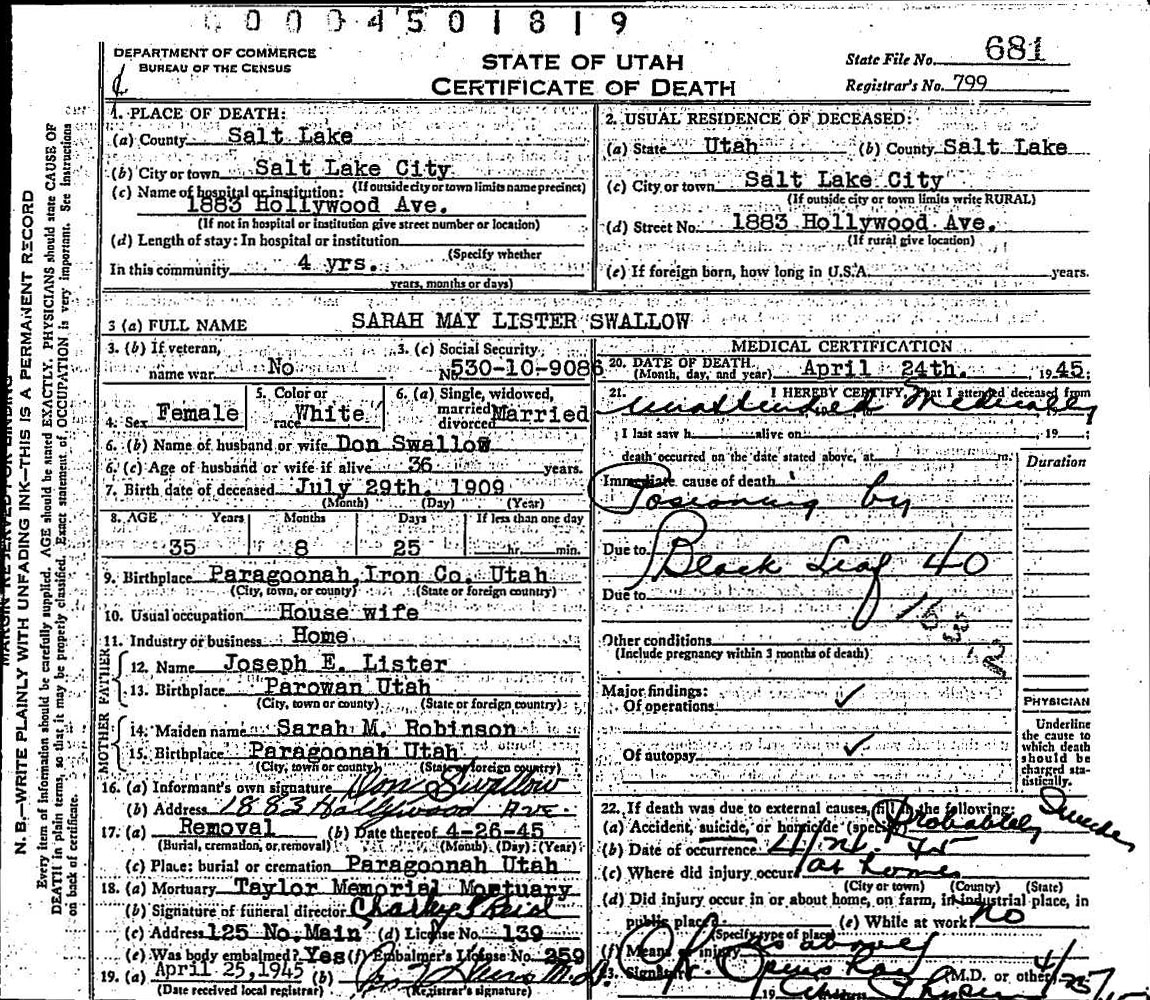 0004501819
DEPARTMENT OF COMMERCE
BUREAU OF THE CENSUS
STATE OF UTAH
CERTIFICATE OF DEATH
State File No. 681
Registrar's No. 799
N. B.—WRITE PLAINLY WITH UNFADING INK—THIS IS A PERMANENT RECORD
Every item of information should be carefully supplied. AGE should be stated EXACTLY. PHYSICIANS should state CAUSE OF
DEATH in plain terms, so that it may be properly classified. Exact statement of OCCUPATION is very important. See instructions
on back of certificate.
1. PLACE OF DEATH:
(a) County Salt Lake
(b) City or town Salt Lake City
(If outside city or town limits name precinct)
(c) Name of hospital or institution:
1883 Hollywood Ave.
(If not in hospital or institution give street number or location)
(d) Length of stay: In hospital or institution
(Specify whether
In this community 4 yrs.
years, months or days)
2. USUAL RESIDENCE OF DECEASED:
(a) State Utah (b) County Salt Lake
(c) City or town Salt Lake City
(If outside city or town limits write RURAL)
(d) Street No. 1883 Hollywood Ave.
(If rural give location)
(e) If foreign born, how long in U.S.A. years.
3 (a) FULL NAME SARAH MAY LISTER SWALLOW
3. (b) If veteran, name war No
3. (c) Social Security No. 530-10-9086
4. Sex Female
5. Color or race White
6. (a) Single, widowed, married, divorced Married
6. (b) Name of husband or wife Don Swallow
6. (c) Age of husband or wife if alive 36 years.
7. Birth date of deceased July 29th. 1909
(Month) (Day) (Year)
8. AGE Years Months Days If less than one day
35 8 25 hr. min.
9. Birthplace Paragoonah, Iron Co. Utah
(City, town, or county) (State or foreign country)
10. Usual occupation House wife
11. Industry or business Home
FATHER
12. Name Joseph E. Lister
13. Birthplace Parowan Utah
(City, town or county) (State or foreign country)
MOTHER
14. Maiden name Sarah M. Robinson
15. Birthplace Paragoonah Utah
(City, town or county) (State or foreign country)
16. (a) Informant's own signature Don Swallow
(b) Address 1883 Hollywood Ave.
17. (a) Removal (b) Date thereof 4-26-45
(Burial, cremation, or removal) (Month) (Day) (Year)
(c) Place: burial or cremation Paragoonah Utah
18. (a) Mortuary Taylor Memorial Mortuary
(b) Signature of funeral director
(c) Address 125 No. Main (d) License No. 139
(e) Was body embalmed? Yes (f) Embalmer's License No. 259
19. (a) April 25, 1945 (b)
(Date received local registrar) (Registrar's signature)
MEDICAL CERTIFICATION
20. DATE OF DEATH
(Month, day, and year) April 24th. 1945
21. I HEREBY CERTIFY, that I attended deceased from
Unattended Medically
I last saw h alive on 19 ;
death occurred on the date stated above, at m.
Duration
Immediate cause of death
Posioning by
Due to Black Leaf 40
Due to
Other conditions
(Include pregnancy within 3 months of death)
Major findings:
Of operations ✓
Of autopsy ✓
PHYSICIAN
Underline
the cause to
which death
should be
charged sta-
tistically.
22. If death was due to external causes, fill in the following:
(a) Accident, suicide, or homicide (specify) Probably Suicide
(b) Date of occurrence 4/24 45
(c) Where did injury occur? at home
(City or town) (County) (State)
(d) Did injury occur in or about home, on farm, in industrial place, in
public place? (e) While at work? No
(Specify type of place)
(f) Means of injury as above
23. Signature (M.D. or other)
4/25/